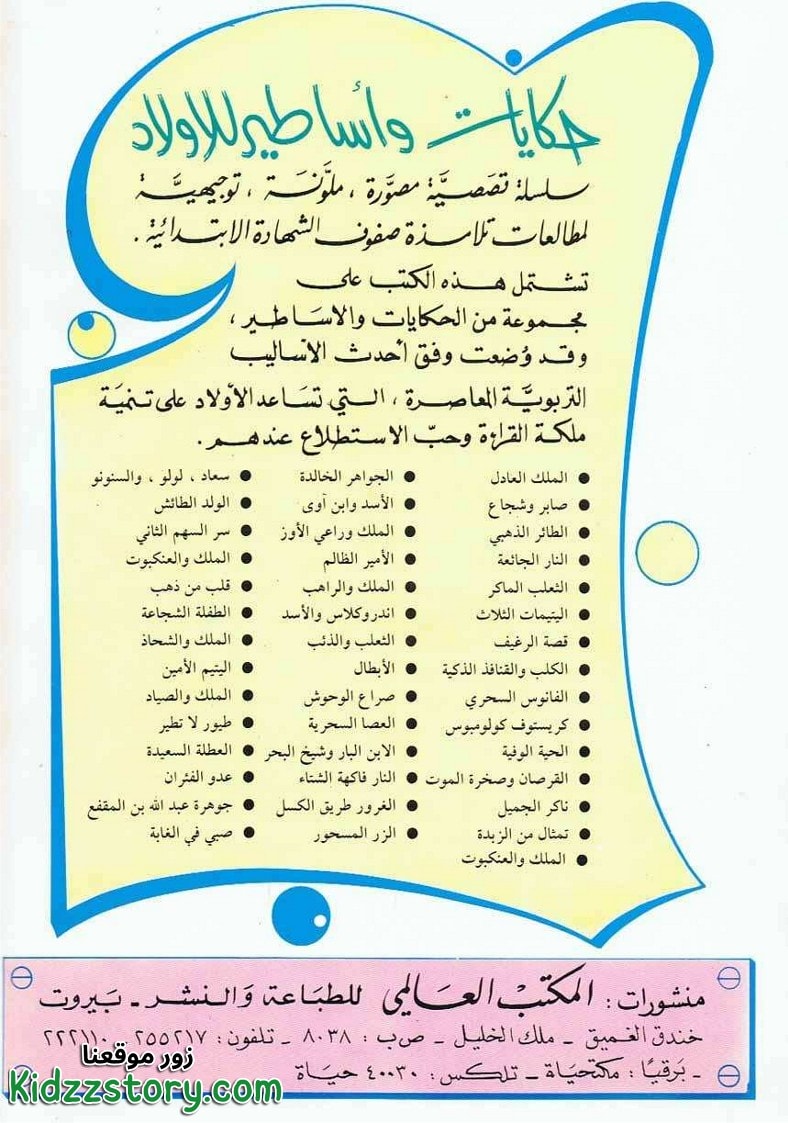 حكايات وأساطير للاولاد
سلسلة قصَصيَّة مصوَّرة ، ملوَّنَة ، توجيهيَّة
لمطالعات تلامذة صفوف الشهادة الابتدائية .
تشتمل هذه الكتب على
مجموعة من الحكايات والاسَاطير ،
وقد وُضعت وفق أحدث الأساليب
التربويَّة المعاصرة ، التي تسَاعد الأولاد على تنميَة
ملكة القراءة وحبّ الاستطلاع عندهم .
● الملك العادل
● صابر وشجاع
● الطائر الذهبي
● النار الجائعة
● الثعلب الماكر
● اليتيمات الثلاث
● قصة الرغيف
● الكلب والقنافذ الذكية
● الفانوس السحري
● كريستوف كولومبوس
● الحية الوفية
● القرصان وصخرة الموت
● ناكر الجميل
● تمثال من الزبدة
● الملك والعنكبوت
● الجواهر الخالدة
● الأسد وابن آوى
● الملك وراعي الأوز
● الأمير الظالم
● الملك والراهب
● اندروكلاس والأسد
● الثعلب والذئب
● الأبطال
● صراع الوحوش
● العصا السحرية
● الابن البار وشيخ البحر
● النار فاكهة الشتاء
● الغرور طريق الكسل
● الزر المسحور
● سعاد ، لولو ، والسنونو
● الولد الطائش
● سر السهم الثاني
● الملك والعنكبوت
● قلب من ذهب
● الطفلة الشجاعة
● الملك والشحاذ
● اليتيم الأمين
● الملك والصياد
● طيور لا تطير
● العطلة السعيدة
● عدو الفئران
● جوهرة عبد الله بن المقفع
● صبي في الغابة
منشورات : المكتب العالمي للطباعة وَالنشر - بَيروت
خندق الغميق - ملك الخليل - ص ب : ٨٠٣٨ - تلفون : ٢٥٥٢١٧ - ٢٢٢١١٠
- بَرقيًا : مكتحيَاة - تلكس : ٤٠٠٣٠ حيَاة
زور موقعنا
Kidzzstory.com